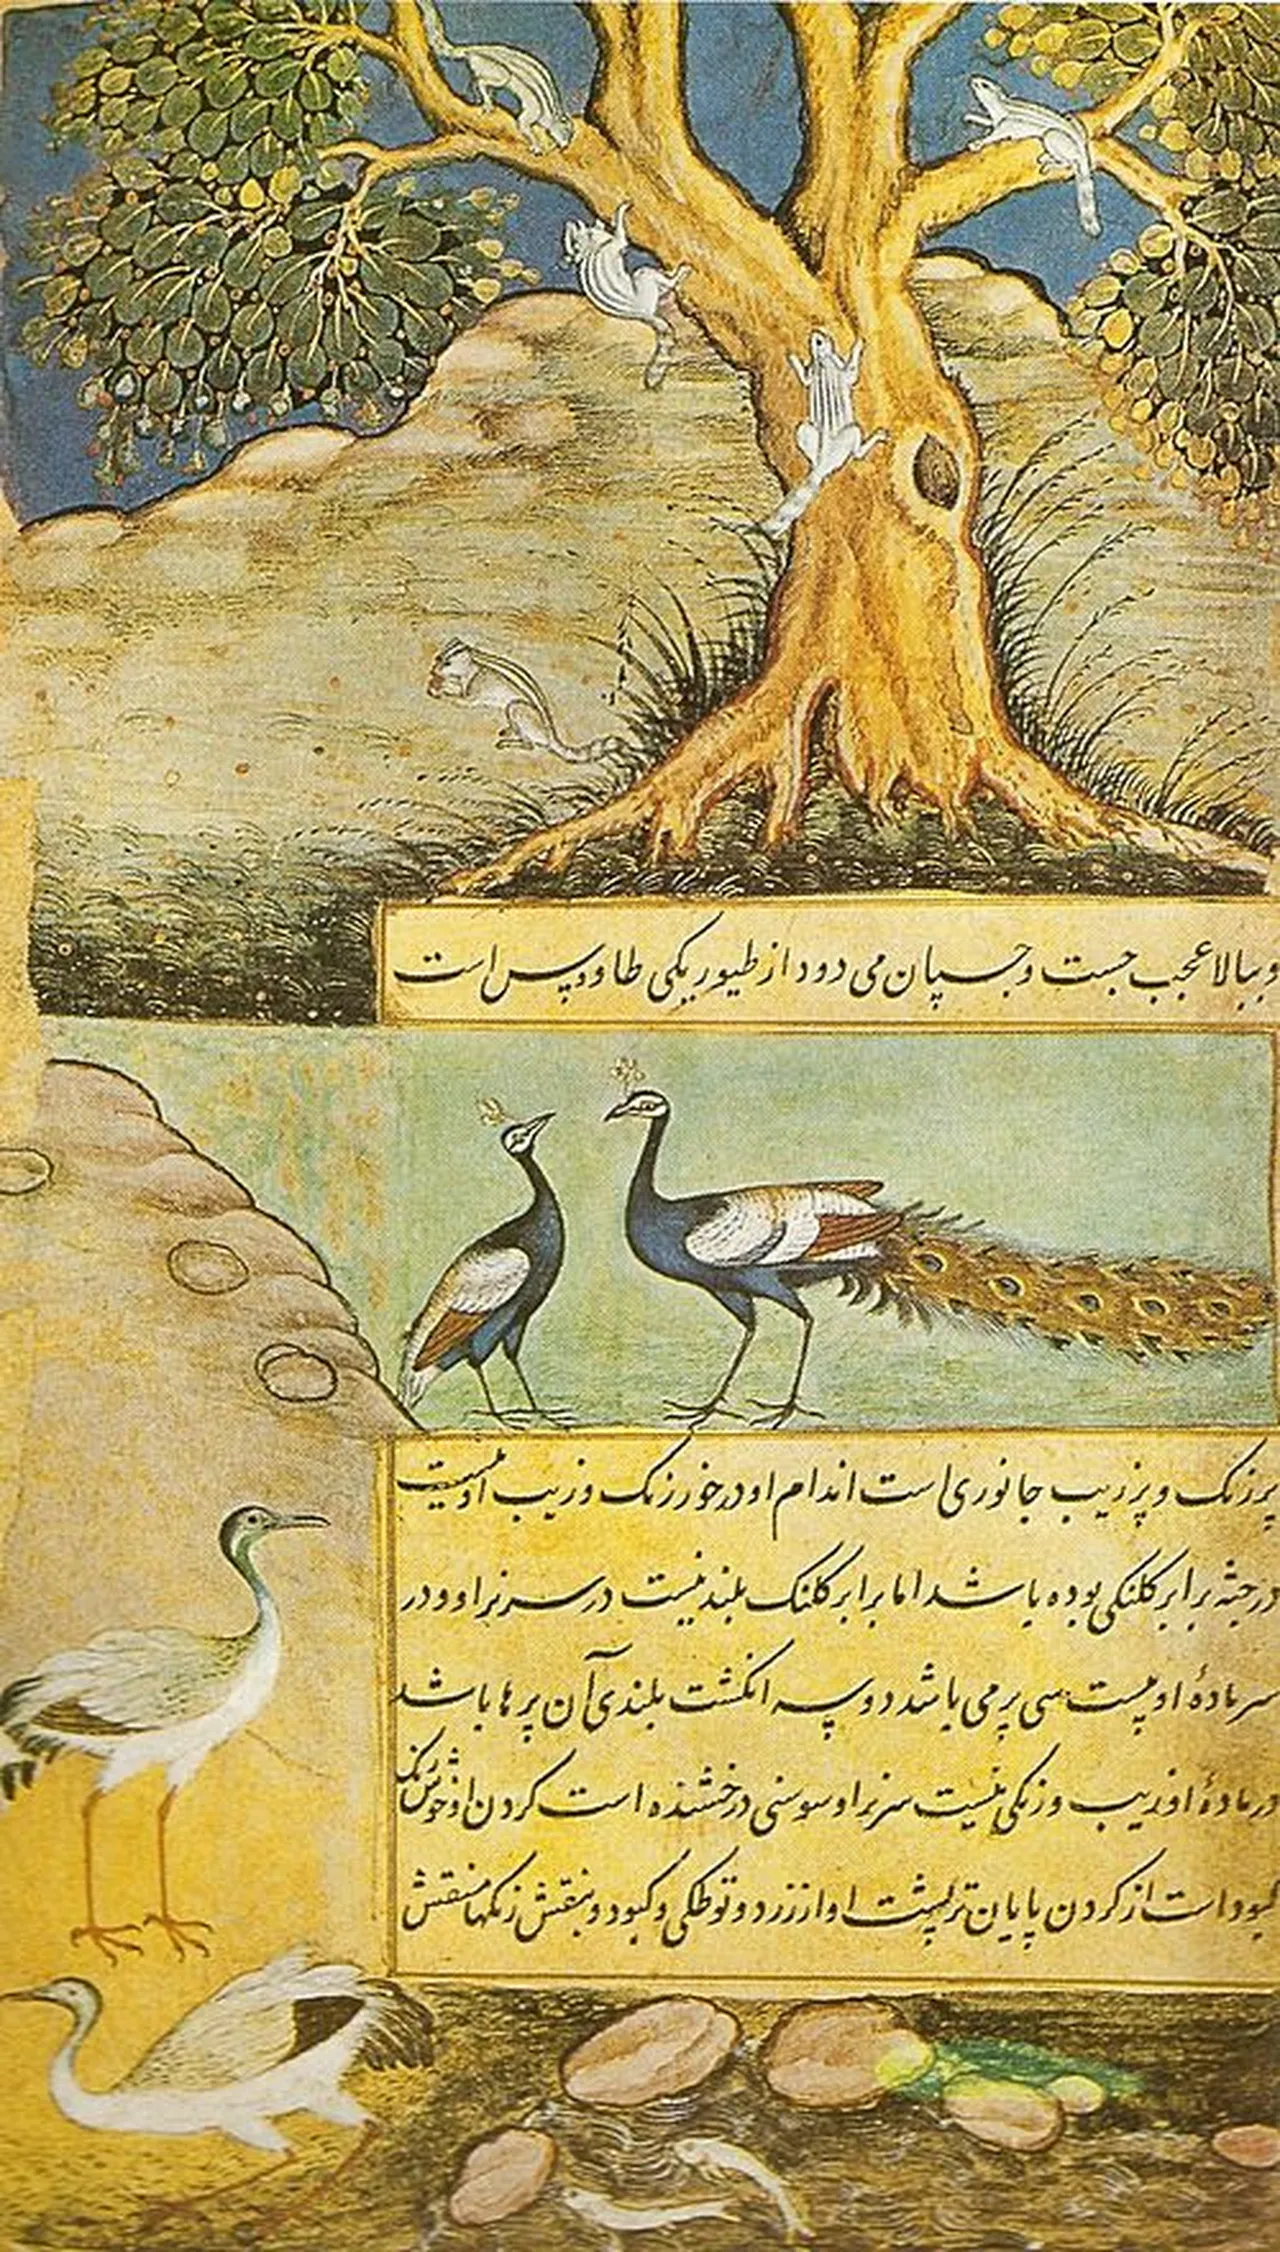 و ببالا عجب جست و چسپان می دود از طیور یکی طاووس است
پررنگ و پرزیب جانوری است اندام او در خور رنگ و زیب او نیست
در جثه برابر کلنکی بوده باشد اما برابر کلنک بلند نیست در سر نر او و در
سر مادهٔ او بیست سی پر می باشد دو سه انکشت بلندی آن پر ها باشد
در مادهٔ او زیب و رنکی نیست سر نر او سوسنی درخشنده است کردن او خوش رنک
کبود است از کردن پایان تر پشت او از زرد و توطکی و کبود و بنفش رنکها منقش